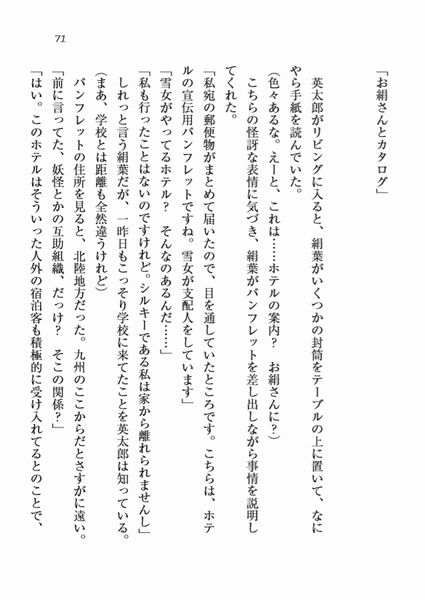 71
「お絹さんとカタログ」
英太郎がリビングに入ると、絹葉がいくつかの封筒をテーブルの上に置いて、なに
やら手紙を読んでいた。
(色々あるな。えーと、これは……ホテルの案内? お絹さんに?)
こちらの怪訝な表情に気づき、絹葉がパンフレットを差し出しながら事情を説明し
てくれた。
「私宛の郵便物がまとめて届いたので、目を通していたところです。こちらは、ホテ
ルの宣伝用パンフレットですね。雪女が支配人をしています」
「雪女がやってるホテル? そんなのあるんだ……」
「私も行ったことはないのですけれど。シルキーである私は家から離れられませんし」
しれっと言う絹葉だが、一昨日もこっそり学校に来てたことを英太郎は知っている。
(まあ、学校とは距離も全然違うけれど)
パンフレットの住所を見ると、北陸地方だった。九州のここからだとさすがに遠い。
「前に言ってた、妖怪とかの互助組織、だっけ? そこの関係?」
「はい。このホテルはそういった人外の宿泊客も積極的に受け入れてるとのことで、